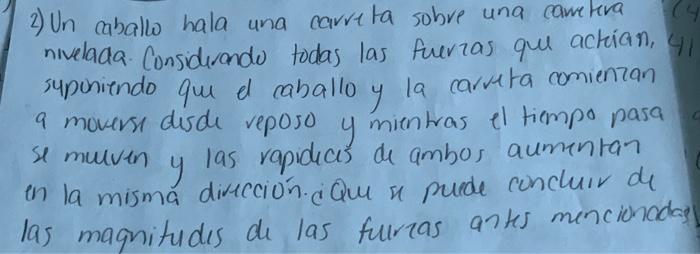 2) Un caballo hala una carreta sobre una carretera
nivelada. Considerando todas las fuerzas que actúan,
suponiendo que el caballo y la carreta comienzan
a moverse desde reposo y mientras el tiempo pasa
se mueven y las rapideces de ambos aumentan
en la misma dirección. ¿Que se puede concluir de
las magnitudes de las fuerzas antes mencionadas